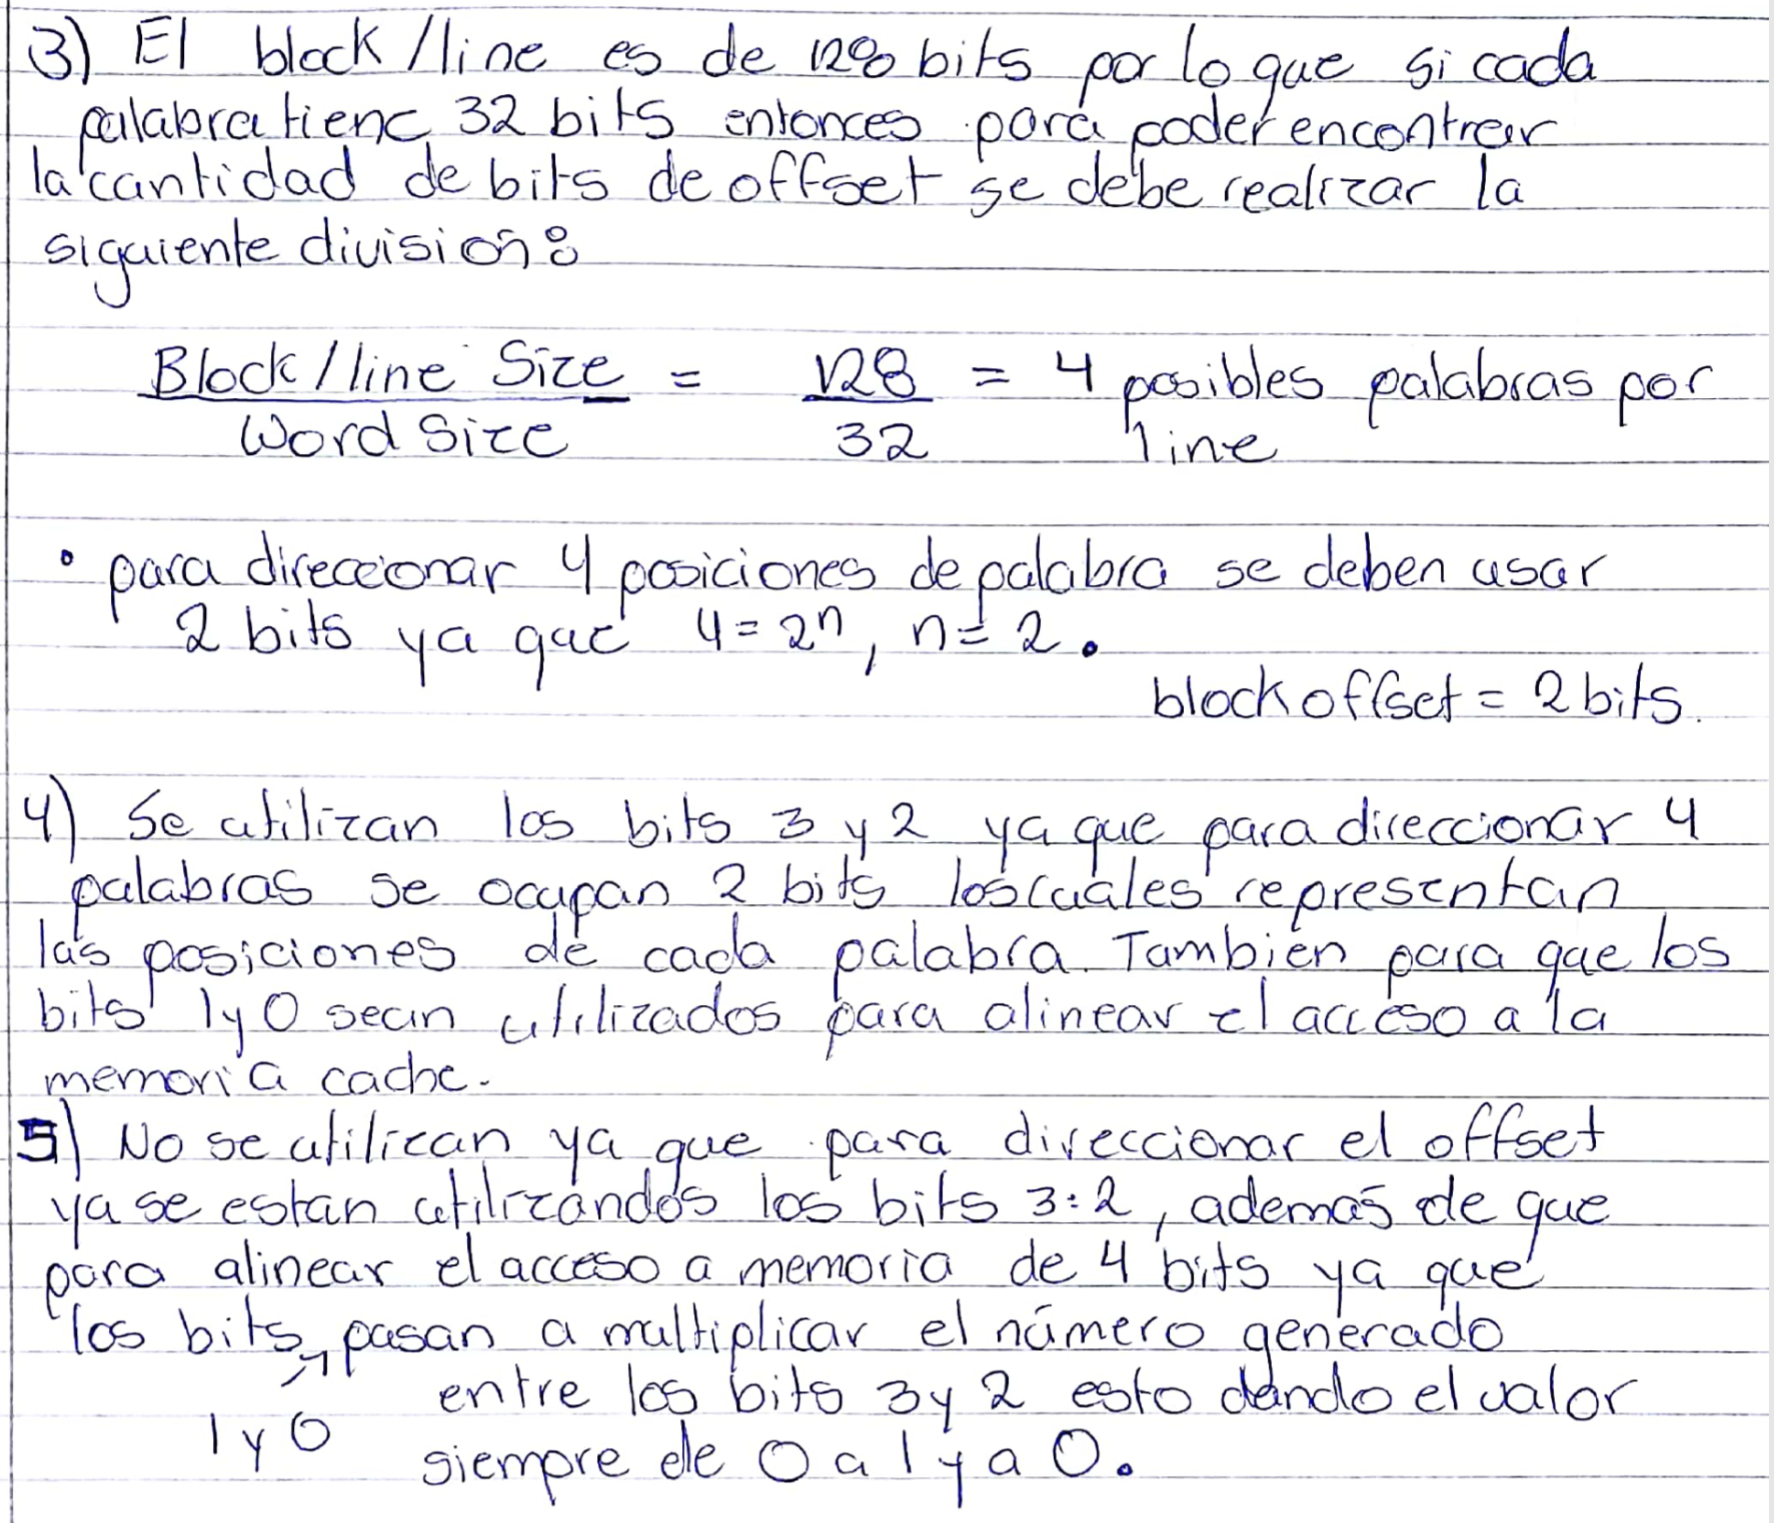 3) El block/line es de 128 bits por lo que si cada
palabra tiene 32 bits entonces para poder encontrar
la cantidad de bits de offset se debe realizar la
siguiente división:
Block/line Size = 128 = 4 posibles palabras por
Word Size 32 line
• para direccionar 4 posiciones de palabra se deben usar
2 bits ya que 4 = 2ⁿ, n = 2.
block offset = 2 bits.
4) Se utilizan los bits 3 y 2 ya que para direccionar 4
palabras se ocupan 2 bits los cuales representan
las posiciones de cada palabra. También para que los
bits 1 y 0 sean utilizados para alinear el acceso a la
memoria cache.
5) No se utilizan ya que para direccionar el offset
ya se están utilizandos los bits 3:2, además de que
para alinear el acceso a memoria de 4 bits ya que
los bits pasan a multiplicar el número generado
1 y 0 entre los bits 3 y 2 esto dando el valor
siempre de 0 a 1 y a 0.